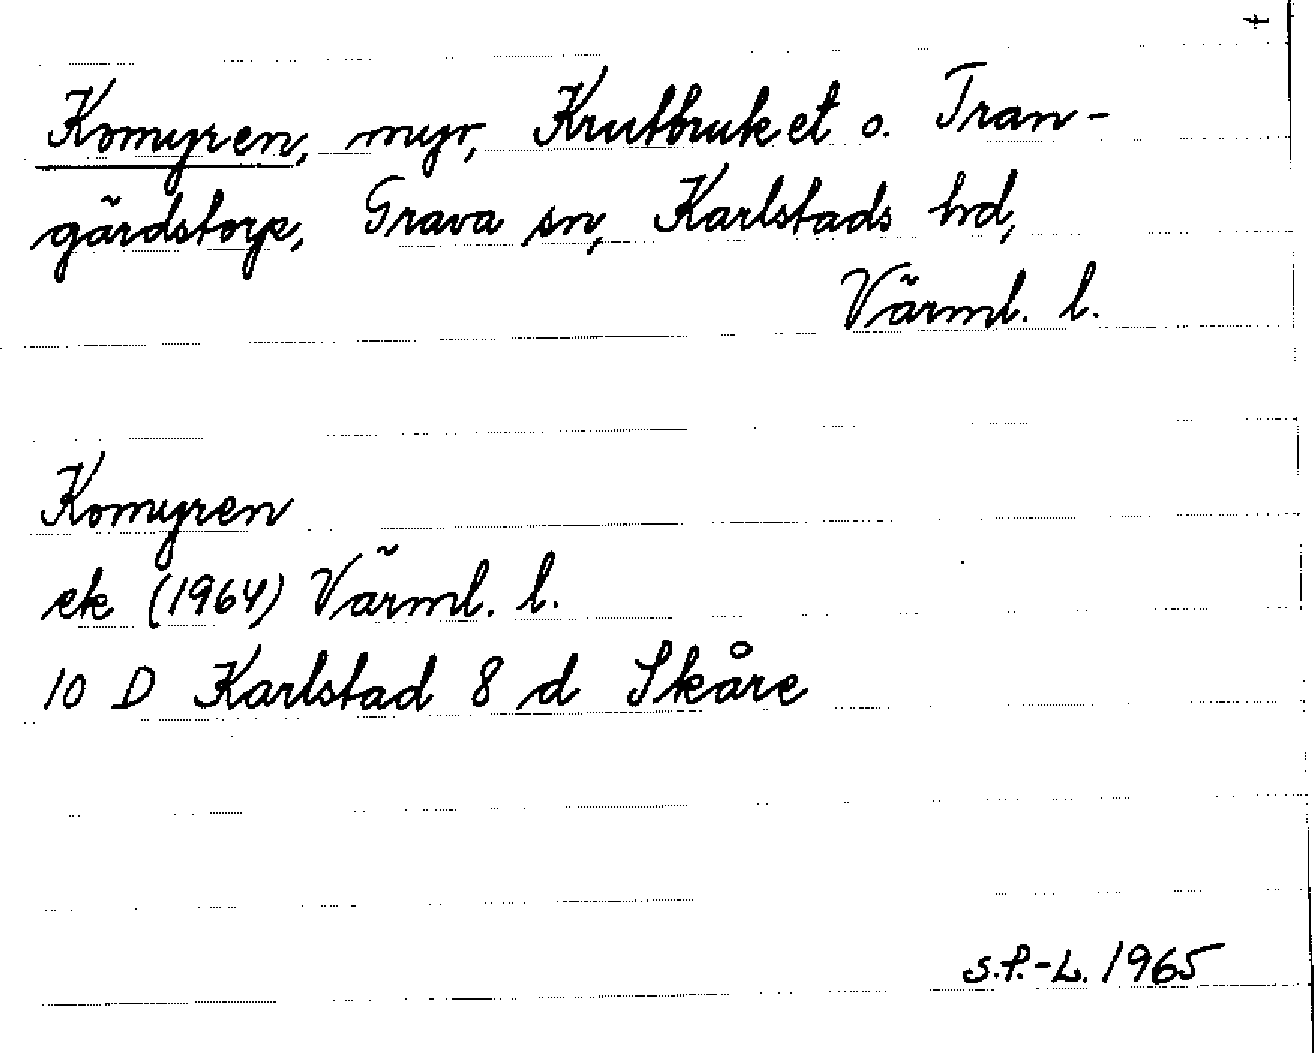 t
Komyren, myr, Krutbruket o. Tran-
gärdstorp, Grava sn, Karlstads hd,
Värml. l.
Komyren
ek (1964) Värml. l.
10 D Karlstad 8 d Skåre
S.P.-L. 1965